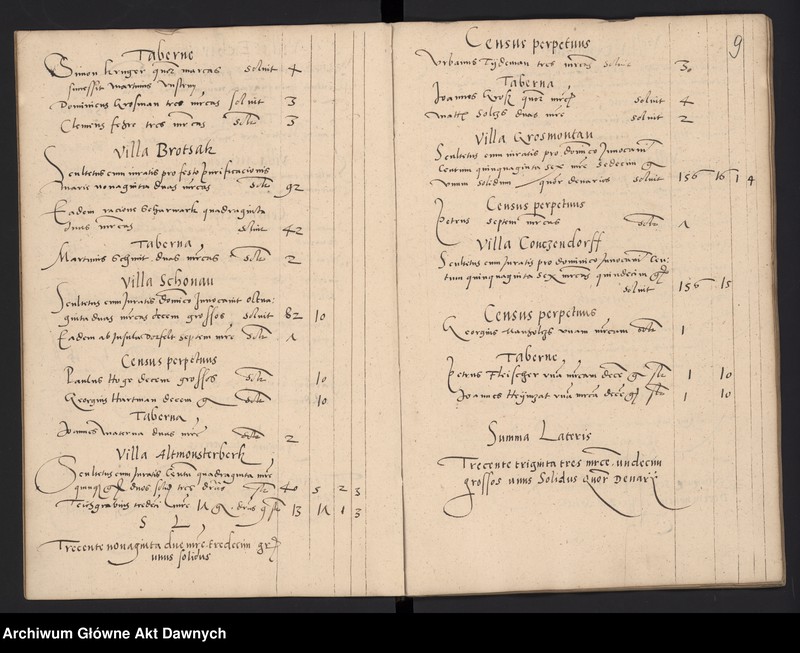 Taberne
Simon Kruger quor marcas soluit 4
successit Martinus
Dominicus Grosman tres mrcas soluit 3
Clemens tres mrcas solt 3
Villa Brotsak
Scultetus cum iuratis pro festo purificacionis
Marie nonaginta duas mrcas solt 92
Eadem racione Scharwark quadraginta
duas mrcas soluit 42
Taberna
Martinus Schmit duas mrcas solt 2
Villa Schonau
Scultetus cum Juratis domico Jnuocauit octua-
ginta duas mrcas decem grossos soluit 82 10
Eadem ab Jnsula septem mrc solt 7
Census perpetuus
Paulus Hoge decem grossos solt 10
Georgius Hartman decem g solt 10
Taberna
Joannes Materna duas mrc solt 2
Villa Altmonsterberk
Scultetus cum Juratis quadraginta mrc
quinq gr duos solid tres driis solt 40 5 2 3
tredeci mrc 17 g 13 17 1 3
S L
Trecente nonaginta due mrc tredecim gr
unus solidus
9
Census perpetuus
Urbanus Tydeman tres mrcas soluit 3
Taberna
Joannes Grosz quor mrc soluit 4
Mattz duas mrc soluit 2
Villa Grosmontau
Scultetus cum iuratis pro domico Jnuocauit
Centum quinquaginta sex mrc sedecim g
vnum solidum quor denarios soluit 156 16 1 4
Census perpetuus
Petrus septem mrcas solt 7
Villa Conczendorff
Scultetus cum Juratis pro dominico Jnuocauit Cen-
tum quinquaginta sex mrcas quindecim gr
soluit 156 15
Census perpetuus
Georgius vnam mrcam solt 1
Taberne
Petrus Fleischer vna mrcam dece g solt 1 10
Joannes vna mrca dece g solt 1 10
Summa Lateris
Trecente triginta tres mrce undecim
grossos unus Solidus Quor Denarij
Archiwum Główne Akt Dawnych